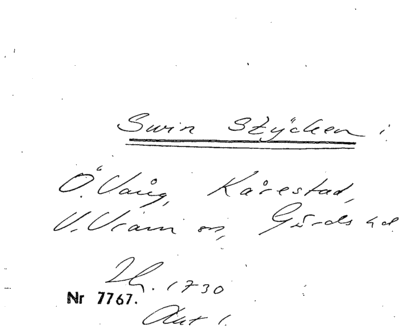 Swin Stÿcken i
Ö. Vång, Kårestad,
V. Vram m, Gärds hd.
1730
Nr 7767.
Akt 1.